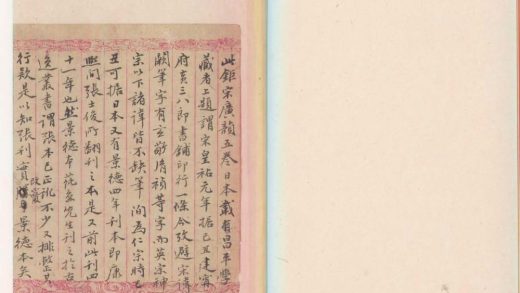 此鉅宋廣韻五卷日本舊有昌平學
藏者上題謂宋皇祐元年據己丑建寗
府黃三八郎書鋪印行一條今攷避宋諱
闕筆字有玄敬清禎等字而英宗神
宗以下諸諱皆不缺筆洵為仁宗時己
丑可據日本又有景德四年刊本即康
熙間張士俊所翻刊之本是又前此刊四
十一年也然景德本 先生刊之於古
逸叢書謂張本已正訛不少又排整其
行款是以知張刊實 景德本矣